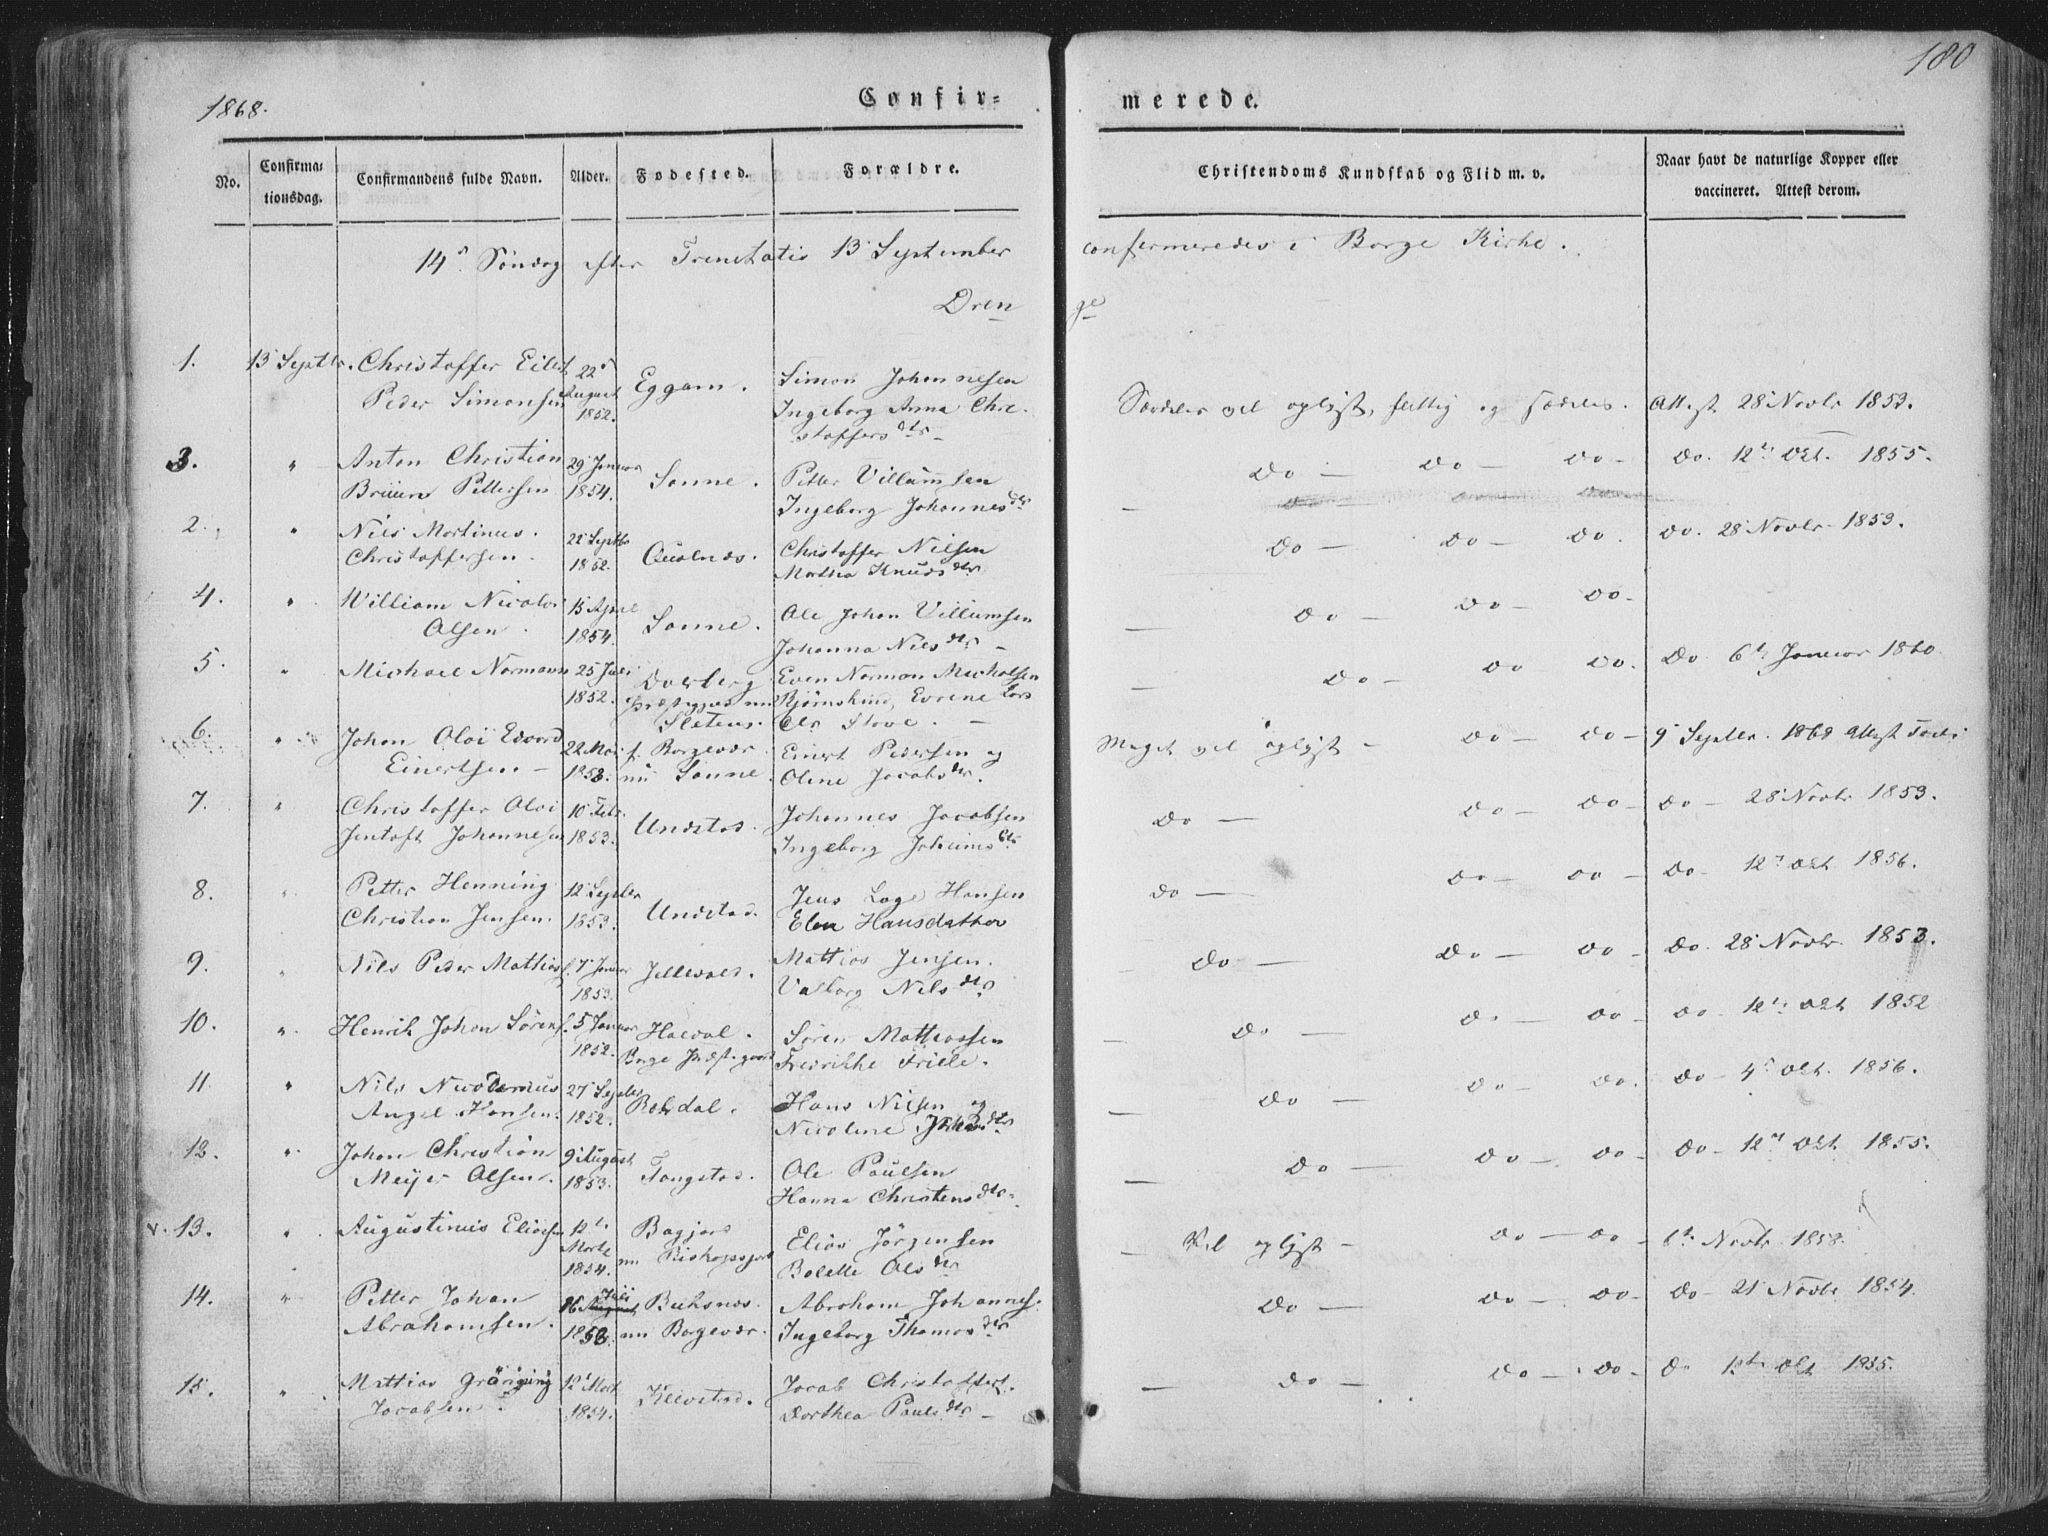 180
1868.
Confir-
merede.
No.
Confirma-
tionsdag.
Confirmandens fulde Navn.
Alder.
Fødested.
Forældre.
Christendoms Kundskab og Flid m. v.
Naar havt de naturlige Kopper eller
vaccineret. Attest derom.
14d Søndag efter Trenitatis 13 September confermeredes i Borge Kirke.
Drenge
1. 13 Septbr. Christoffer Eilert
Peder Simonsen
22d August 1852.
Eggum.
Simon Johannesen
Ingeborg Anna Chri-
stoffersdtr
Særdeles vel oplyst, flittig og sædelig. Attest 28 Novbr 1853.
3. " Anton Christian
Bruun Pettersen
29 Januar 1854.
Sanne.
Petter Villumsen
Ingeborg Johannesdtr
Do — Do — Do — Do. 12te Oct. 1855.
2. " Nils Martinus
Christoffersen
22 Septbr 1852.
Qualnæs.
Christoffer Nilsen
Martha Knudsdtr
Do — Do — Do. Do. 28 Novbr 1853.
4. " William Nicolai
Olsen
13 April 1854.
Sanne.
Ole Johan Villumsen
Johanna Nilsdtr
Do — Do — Do —
5. " Michael Normann
25 Juli 1852.
Even Norman Michelsen
Bjørnskind, Evrene Lars
Do — Do Do. Do 6te Januar 1860
6. " Johan Olai Edvard
Einertsen
22 Mai 1853.
f. Borgevær
nu Sanne.
Einert Pedersen og
Oline Jacobsdtr.
Meget vel oplyst — Do — Do — 9 Septbr. 1868 Attest
7. " Christoffer Olai
Jentoft Johannesen
10 Febr. 1853.
Undstad.
Johannes Jacobsen
Ingeborg
Do — Do — Do — Do — 28 Novbr 1853.
8. " Petter Henning
Christian Jensen.
12 Septbr 1853.
Undstad.
Jens Lage Hansen
Elen Hansdatter
Do — Do — Do — Do 12te Oct 1856.
9. " Nils Peder Mathias
f. 7 Januar 1853.
Mattias Jensen.
Valborg Nilsdtr
Do — Do — Do — Do. 28 Novbr 1853.
10. " Henrik Johan Sørens.
5 Januar 1852.
Borge Præstegaard
Søren Mathiassen
Fredrikke Friele.
Do — Do — Do — Do 12te Oct 1852
11 " Nils Nicodemus
Angel Hansen.
27 Septbr 1852.
Hans Nilsen og
Nicoline
Do — Do — Do. Do — 4d Oct. 1856.
12. " Johan Christian
Meyer Olsen.
9 August 1853.
Tangstad.
Ole Paulsen
Hanna Christensdtr.
Do — Do — Do — Do — 12te Oct 1855.
v. 13. " Augustinus Eliasen
12te Marts 1854.
nu
Elias Jørgensen
Bolette Olsdtr
Vel oplyst — Do — Do — Novbr 1858.
14. " Petter Johan
Abrahamsen.
16 Juli 1853.
Buksnæs.
nu Borgevær.
Abraham Johannes.
Ingeborg Thomasdtr
Do — Do — Do — Do — 21 Novbr 1854.
15. " Mattias Grønning
Jacobsen.
12 Mart 1854.
Klevstad.
Jacob Christoffers.
Dorthea Paulsdtr
Do — Do — Do — Do 12te Oct 1855.